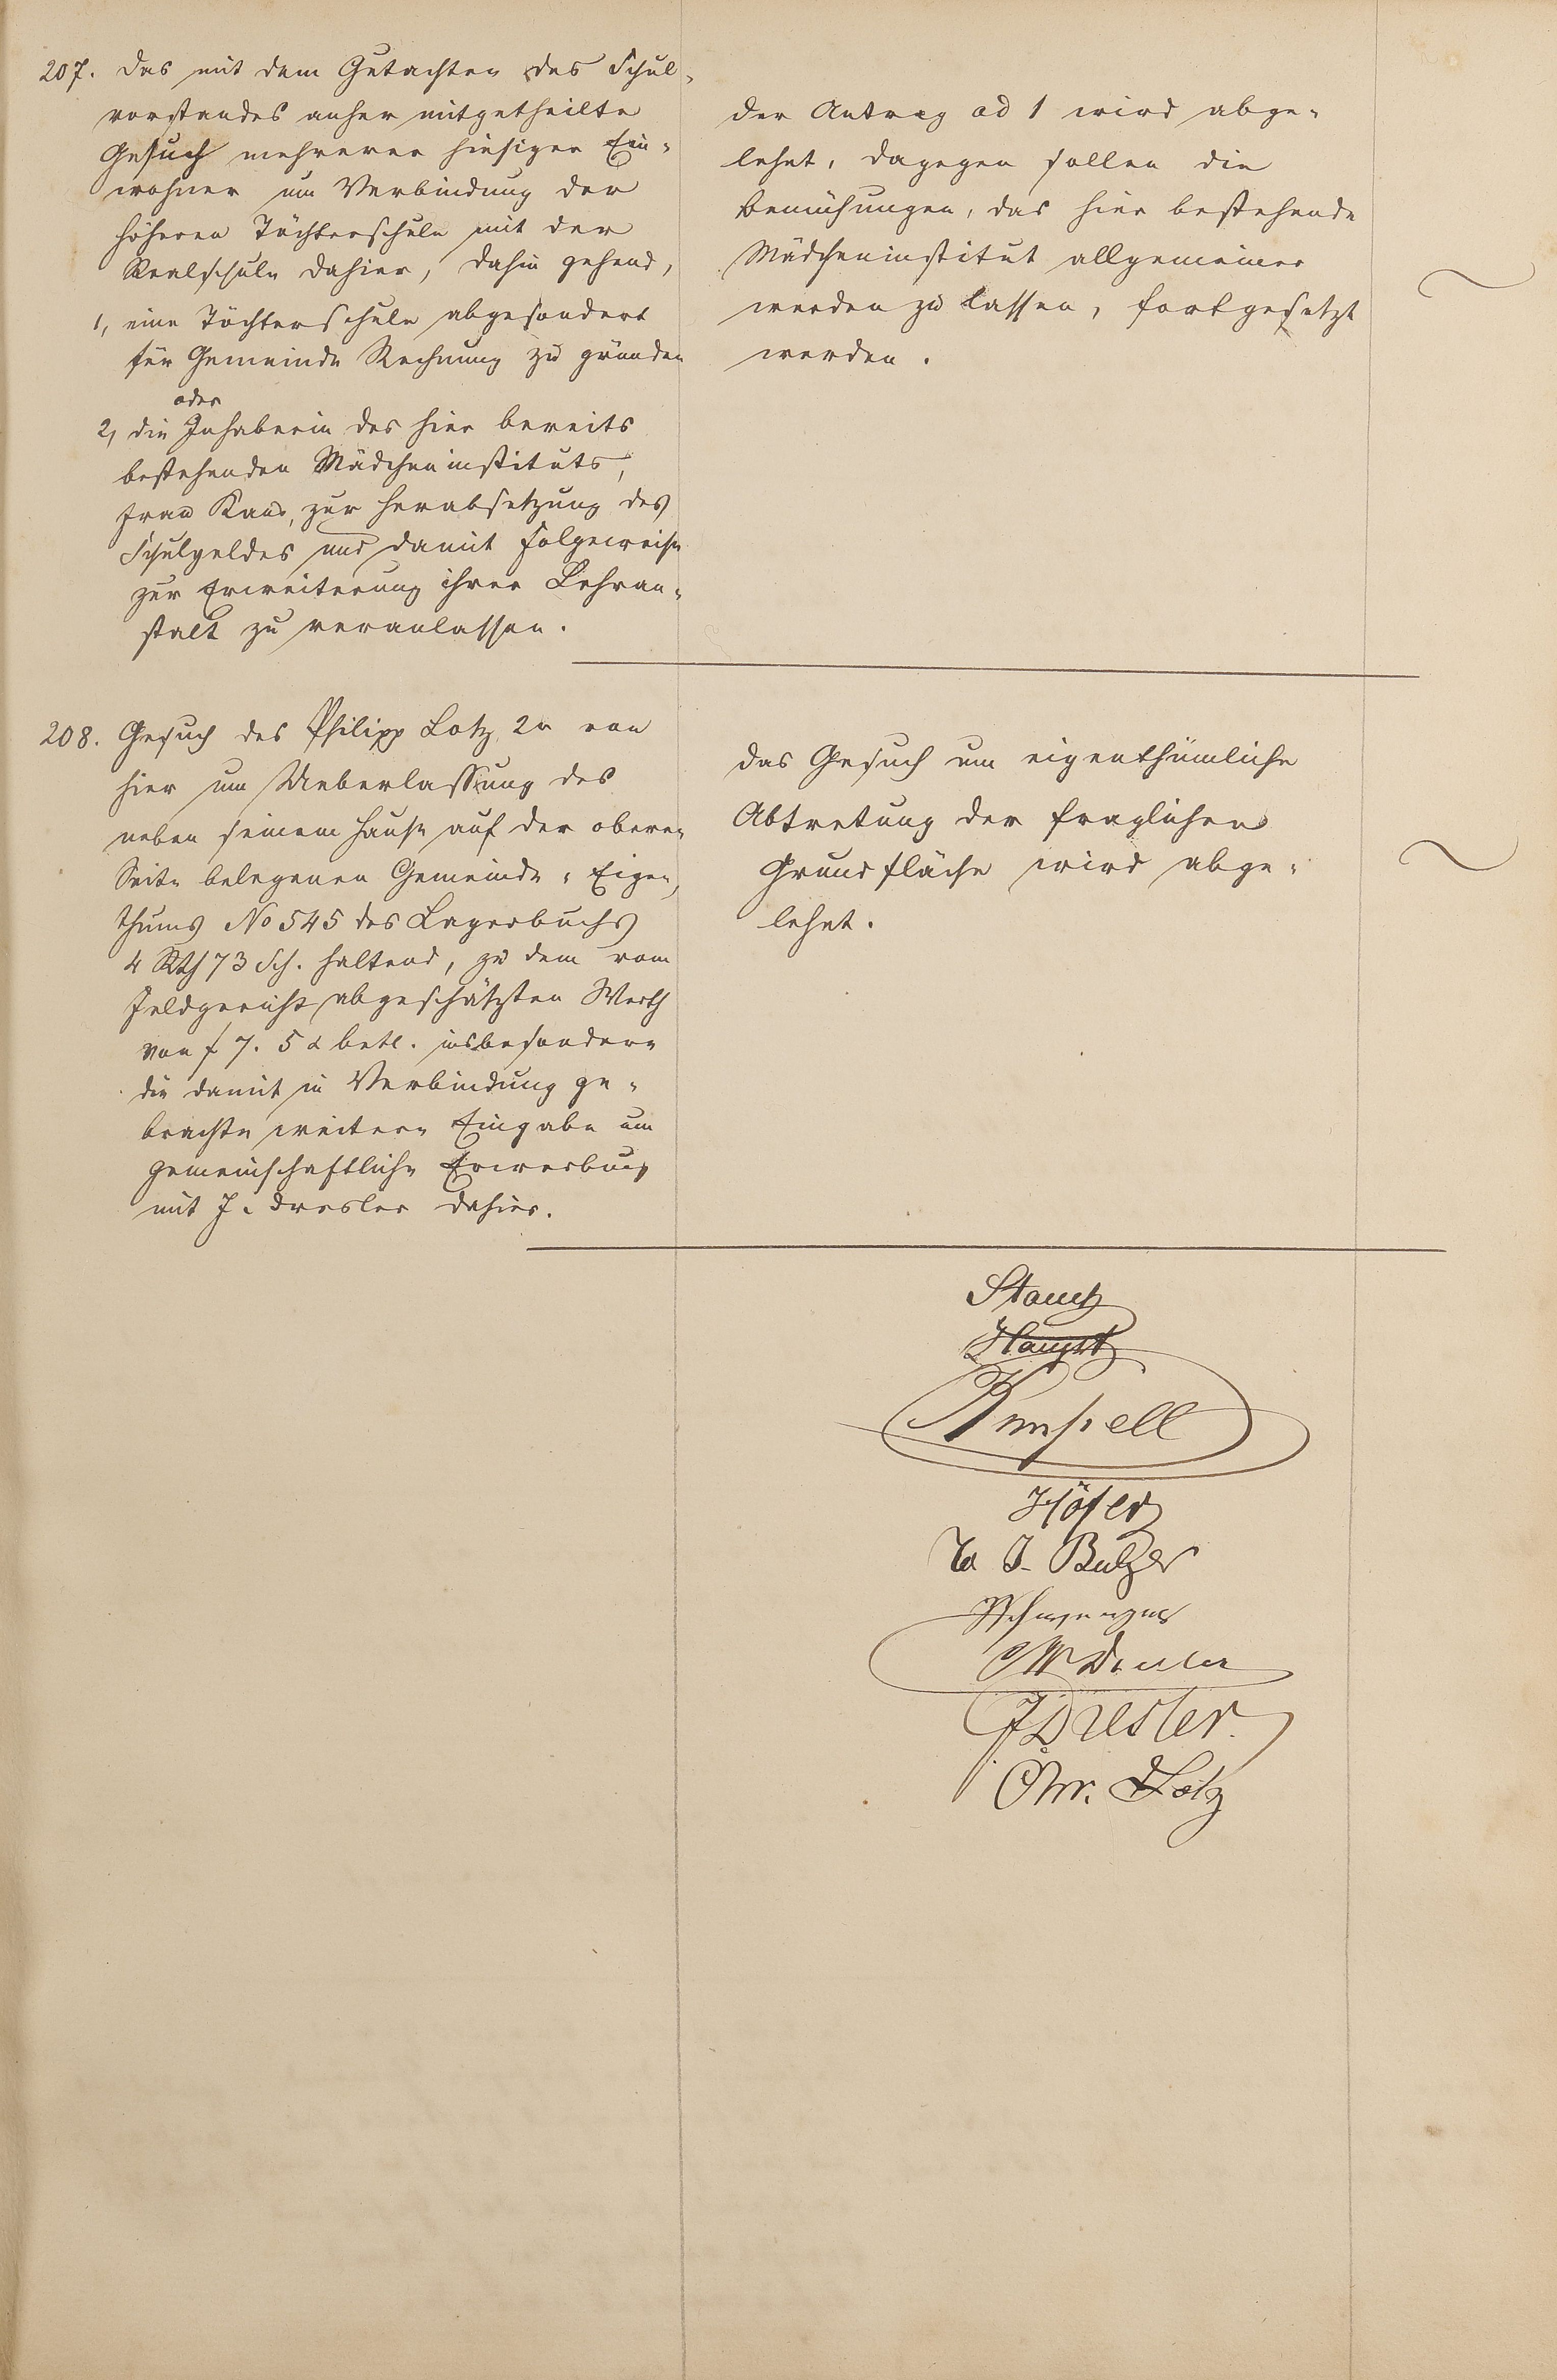 207. Das mit dem Gutachten des Schul-
vorstandes anher mitgetheilte
Gesuch mehrerer hiesiger Ein-
wohner um Verbindung der
höheren Töchterschule mit der
Realschule dahier, dahin gehend,
1, eine Töchterschule abgesondert
für Gemeinde Rechnung zu gründen
oder
2, die Inhaberin des hier bereits
bestehenden Mädcheninstituts,
Frau zur Herabsetzung des
Schulgeldes und damit folgeweise
zur Erweiterung ihrer Lehran-
stalt zu veranlassen.
Der Antrag ad 1 wird abge-
lehnt, dagegen sollen die
Bemühungen, das hier bestehende
Mädcheninstitut allgemeiner
werden zu lassen, fortgesetzt
werden.
208. Gesuch des Philipp Lotz 2r von
hier um Ueberlassung des
neben seinem Hause auf der oberen
Seite belegenen Gemeinde-Eigen-
thums No 545 des Lagerbuchs
4 Rth 73 Sch. haltend, zu dem vom
Feldgericht abgeschätzten Werth
von f 7. 5 x betr. insbesondere
die damit in Verbindung ge-
brachte weitere Eingabe um
gemeinschaftliche Erwerbung
mit J. Dresler dahier.
Das Gesuch um eigenthümliche
Abtretung der fraglichen
Grundfläche wird abge-
lehnt.
Haupt
Höfer
J. Balzer
JDresler.
Chr. Lotz